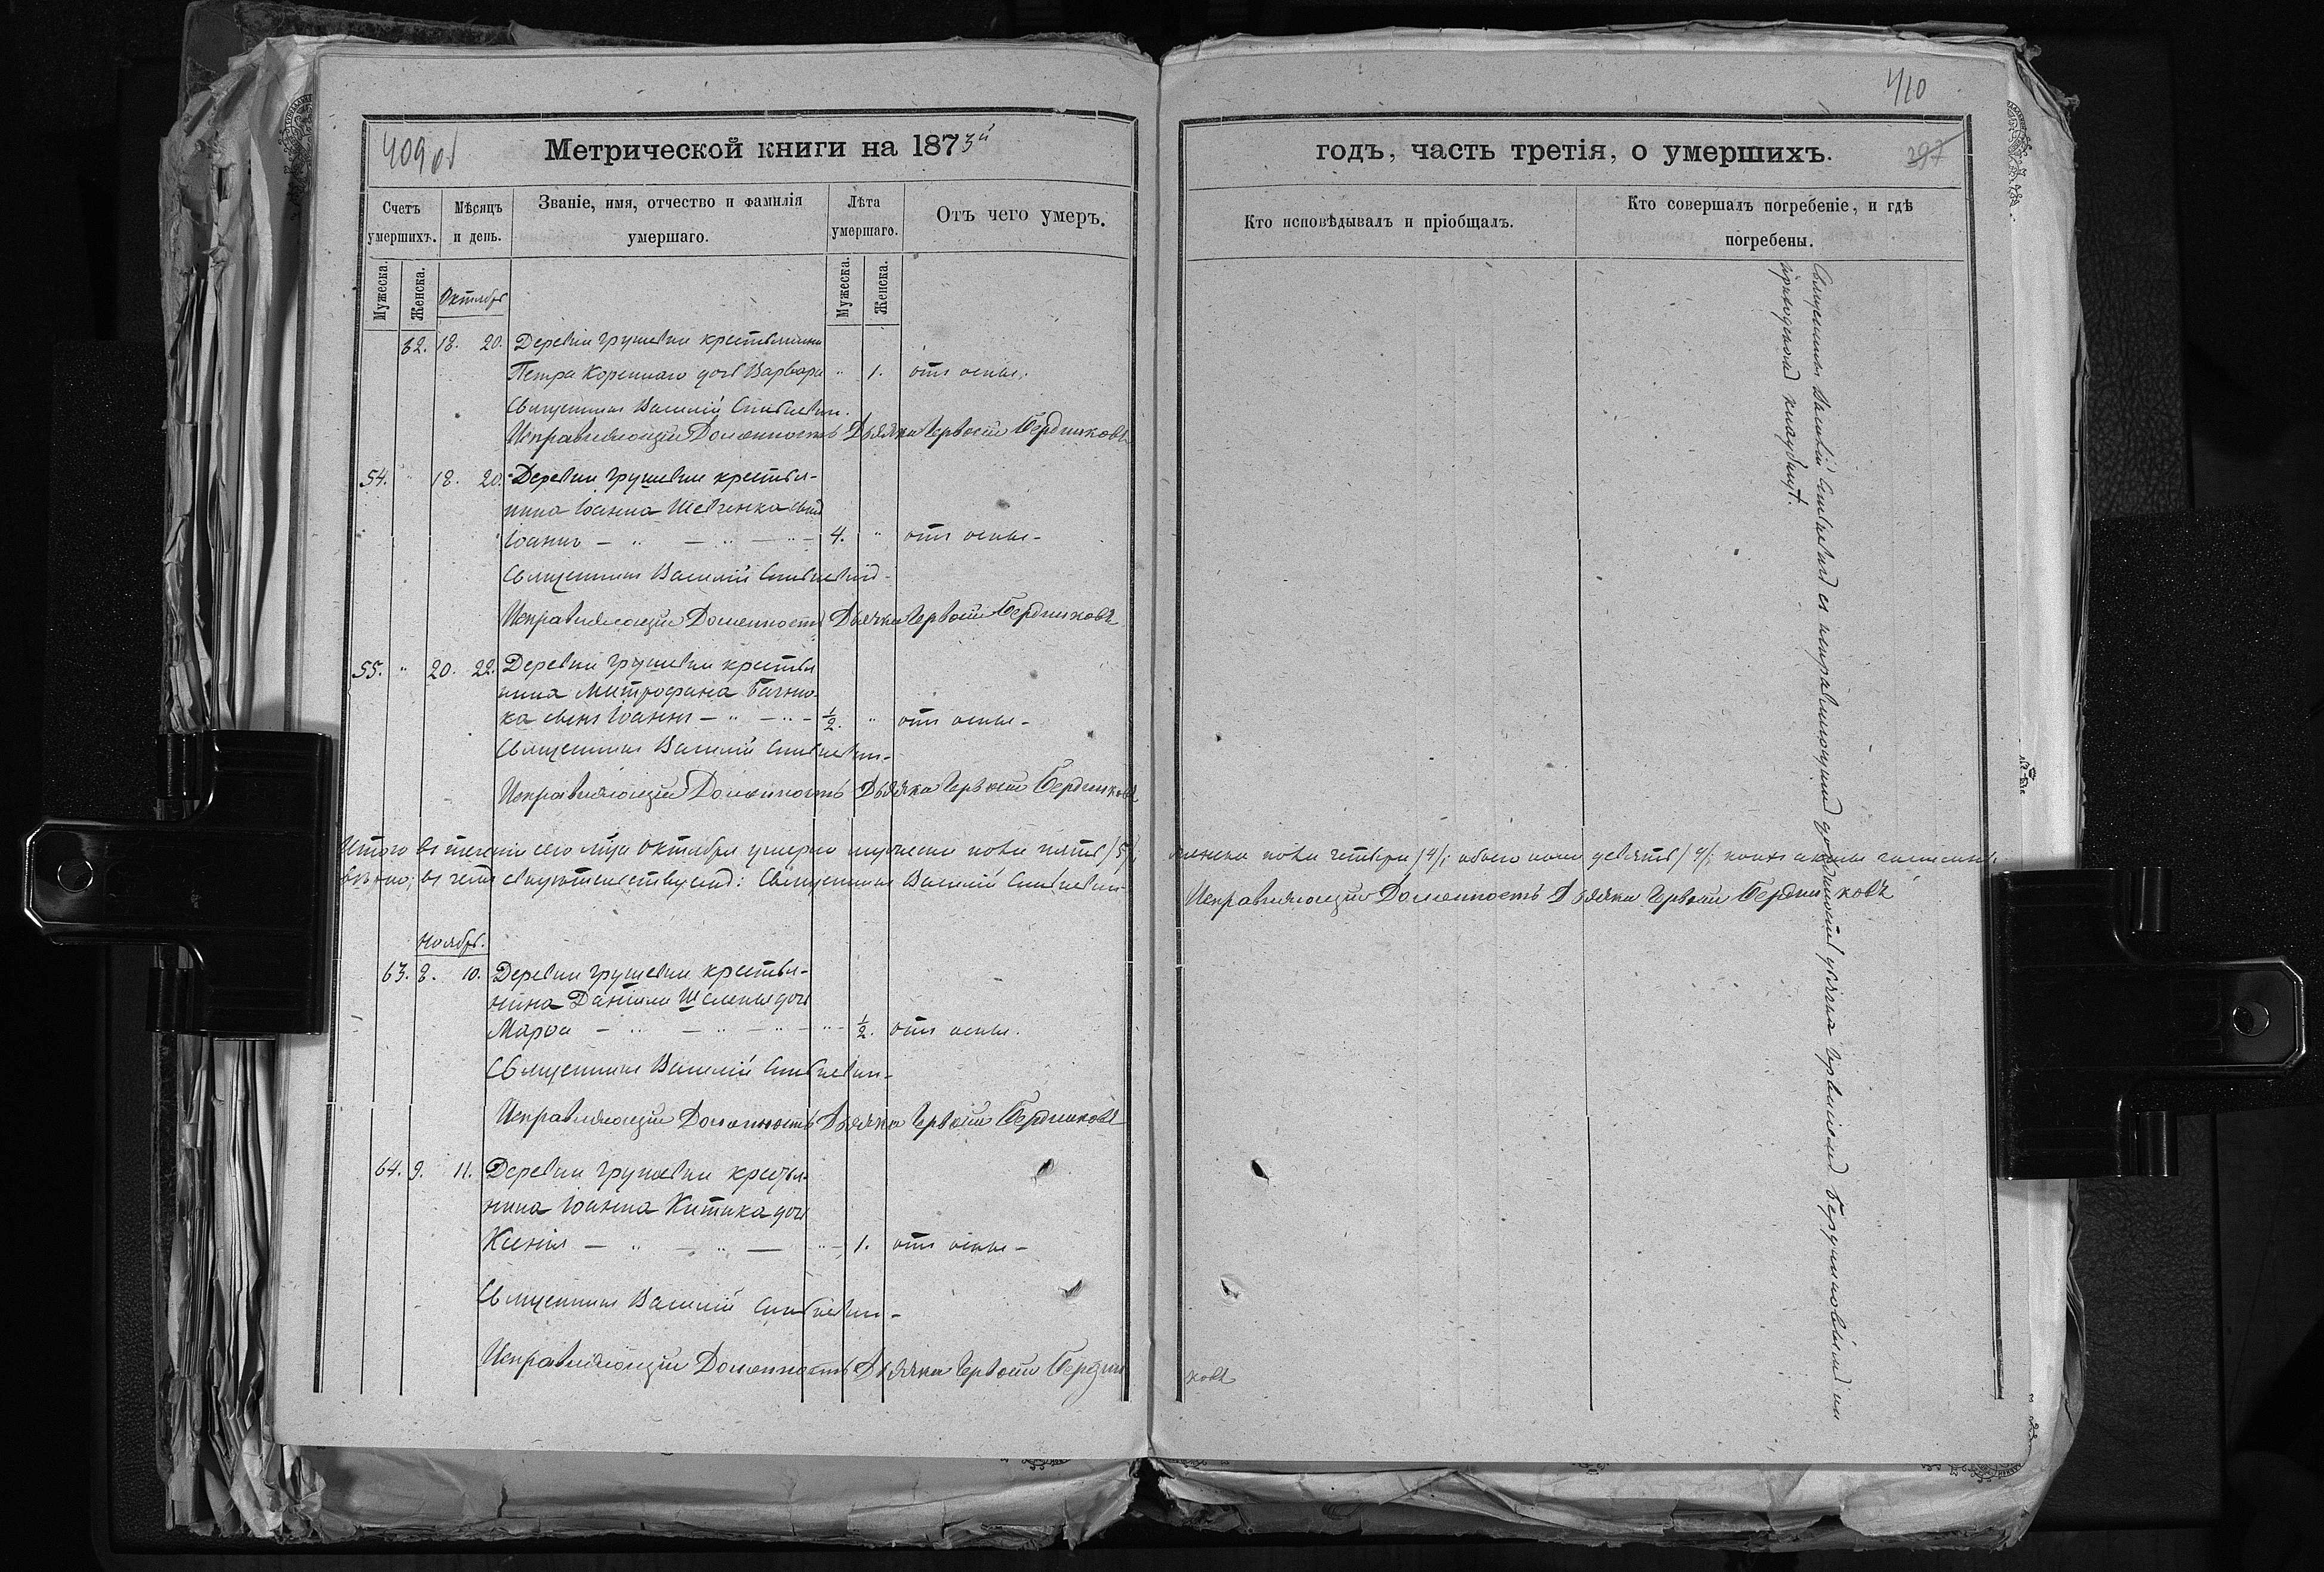 409 об
Метрической книги на 1873й
Счетъ умершихъ.
Мѣсяцъ и день.
Званіе, имя, отчество и фамилія умершаго.
Лѣта умершаго.
Отъ чего умеръ.
Мужеска.
Женска.
Октябрь
Мужеска.
Женска.
62. 18. 20. Деревни Грушевки крестьянина
Петра Кореннаго дочь Варвара " 1. отъ оспы.
Священникъ Василій
Исправляющій Должность Дьячка Бердниковъ
54. " 18. 20. Деревни Грушевки крестья-
нина Іоанна Шевченка сынъ
Іоаннъ — " — " — " — 4. " отъ оспы —
Священникъ Василій
Исправляющій Должность Дьячка Бердниковъ
55. " 20. 22. Деревни Грушевки крестья
нина Митрофана
ка сынъ Іоаннъ — " — " — ½. " отъ оспы —
Священникъ Василій
Исправляющій Должность Дьячка Бердниковъ
Итого въ теченіи сего м-ца Октября умерло мужеска пола пять /5/,
вѣрно; въ чемъ свидѣтельствуемъ: Священникъ Василій
Ноябрь.
63. 8. 10. Деревни Грушевки крестья-
нина Даніила дочь
Марѳа — " — " — " — " — ½. отъ оспы.
Священникъ Василій
Исправляющій Должность Дьячка Бердниковъ
64. 9. 11. Деревни Грушевки крестья-
нина Іоанна Китика дочь
Ксенія — " — " — " — 1. отъ оспы —
Священникъ Василій
Исправляющій Должность Дьячка Бердни
410
годъ, часть третія, о умершихъ.
297
Кто исповѣдывалъ и пріобщалъ.
Кто совершалъ погребеніе, и гдѣ погребены.
Священникъ Василій съ исправляющимъ должность дьячка Бердниковымъ на
приходскомъ кладбищѣ.
женска пола четыри /4/; обоего пола девять /9/;
Исправляющій Должность Дьячка Бердниковъ
ковъ